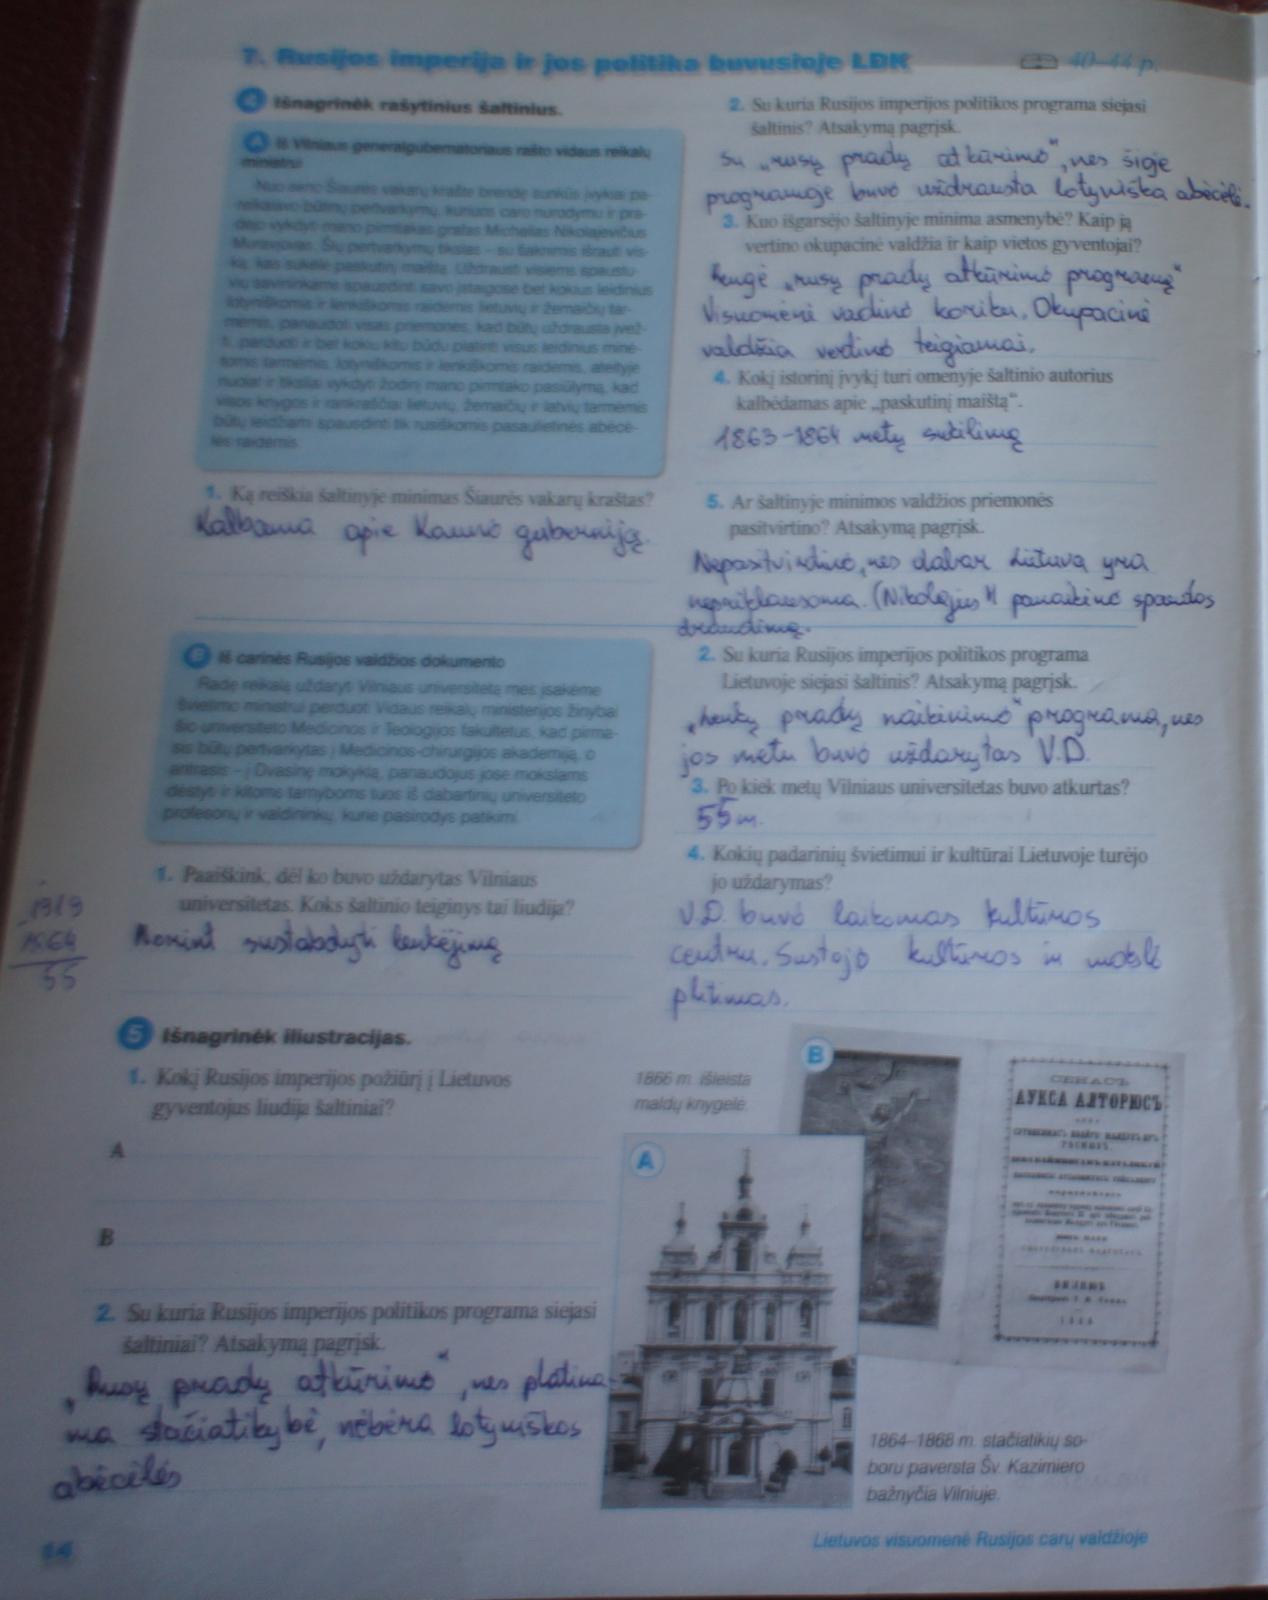 7. Rusijos imperija ir jos politika buvusioje LDK
40–44 p.
4 Išnagrinėk rašytinius šaltinius.
A Iš Vilniaus generalgubernatoriaus rašto vidaus reikalų
ministrui
Nuo seno Šiaurės vakarų krašte brendę sunkūs įvykiai pa-
reikalavo būtinų pertvarkymų, kuriuos caro nurodymu ir pra-
dėjo vykdyti mano pirmtakas grafas Michailas Nikolajevičius
Muravjovas. Šių pertvarkymų tikslas – su šaknimis išrauti vis-
ką, kas sukėlė paskutinį maištą. Uždrausti visiems spaustu-
vių savininkams spausdinti savo įstaigose bet kokius leidinius
lotyniškomis ir lenkiškomis raidėmis lietuvių ir žemaičių tar-
mėmis, panaudoti visas priemones, kad būtų uždrausta įvež-
ti, parduoti ir bet kokiu kitu būdu platinti visus leidinius minė-
tomis tarmėmis, lotyniškomis ir lenkiškomis raidėmis, ateityje
nuolat ir tiksliai vykdyti žodinį mano pirmtako pasiūlymą, kad
visos knygos ir rankraščiai lietuvių, žemaičių ir latvių tarmėmis
būtų leidžiami spausdinti tik rusiškomis pasaulietinės abėcė-
lės raidėmis.
1. Ką reiškia šaltinyje minimas Šiaurės vakarų kraštas?
Kalbama apie Kauno guberniją.
2. Su kuria Rusijos imperijos politikos programa siejasi
šaltinis? Atsakymą pagrįsk.
Su „rusų pradų atkūrimo", nes šioje
programoje buvo uždrausta lotyniška abėcėlė.
3. Kuo išgarsėjo šaltinyje minima asmenybė? Kaip ją
vertino okupacinė valdžia ir kaip vietos gyventojai?
Rengė „rusų pradų atkūrimo programą"
Visuomenė vadino koriku. Okupacinė
valdžia vertino teigiamai.
4. Kokį istorinį įvykį turi omenyje šaltinio autorius
kalbėdamas apie „paskutinį maištą".
1863-1864 metų sukilimą
5. Ar šaltinyje minimos valdžios priemonės
pasitvirtino? Atsakymą pagrįsk.
Nepasitvirtino, nes dabar Lietuva yra
nepriklausoma. (Nikolajus II panaikino spaudos
draudimą.
B Iš carinės Rusijos valdžios dokumento
Radę reikalą uždaryti Vilniaus universitetą mes įsakėme
Švietimo ministrui perduoti Vidaus reikalų ministerijos žinybai
šio universiteto Medicinos ir Teologijos fakultetus, kad pirma-
sis būtų pertvarkytas į Medicinos-chirurgijos akademiją, o
antrasis – į Dvasinę mokyklą, panaudojus jose mokslams
dėstyti ir kitoms tarnyboms tuos iš dabartinių universiteto
profesorių ir valdininkų, kurie pasirodys patikimi.
1. Paaiškink, dėl ko buvo uždarytas Vilniaus
universitetas. Koks šaltinio teiginys tai liudija?
Norint sustabdyti lenkėjimą
1919
1864
55
2. Su kuria Rusijos imperijos politikos programa
Lietuvoje siejasi šaltinis? Atsakymą pagrįsk.
„Lenkų pradų naikinimo" programa, nes
jos metu buvo uždarytas V.D.
3. Po kiek metų Vilniaus universitetas buvo atkurtas?
55 m.
4. Kokių padarinių švietimui ir kultūrai Lietuvoje turėjo
jo uždarymas?
V.D. buvo laikomas kultūros
centru. Sustojo kultūros ir mokslo
plitimas.
5 Išnagrinėk iliustracijas.
1. Kokį Rusijos imperijos požiūrį į Lietuvos
gyventojus liudija šaltiniai?
A
B
2. Su kuria Rusijos imperijos politikos programa siejasi
šaltiniai? Atsakymą pagrįsk.
„Rusų pradų atkūrimo", nes platina-
ma stačiatikybė, nėbėra lotyniškos
abėcėlės
1866 m. išleista
maldų knygelė.
B
АУКСА АЛТОРЮСЪ
A
1864–1868 m. stačiatikių so-
boru paversta Šv. Kazimiero
bažnyčia Vilniuje.
14
Lietuvos visuomenė Rusijos carų valdžioje